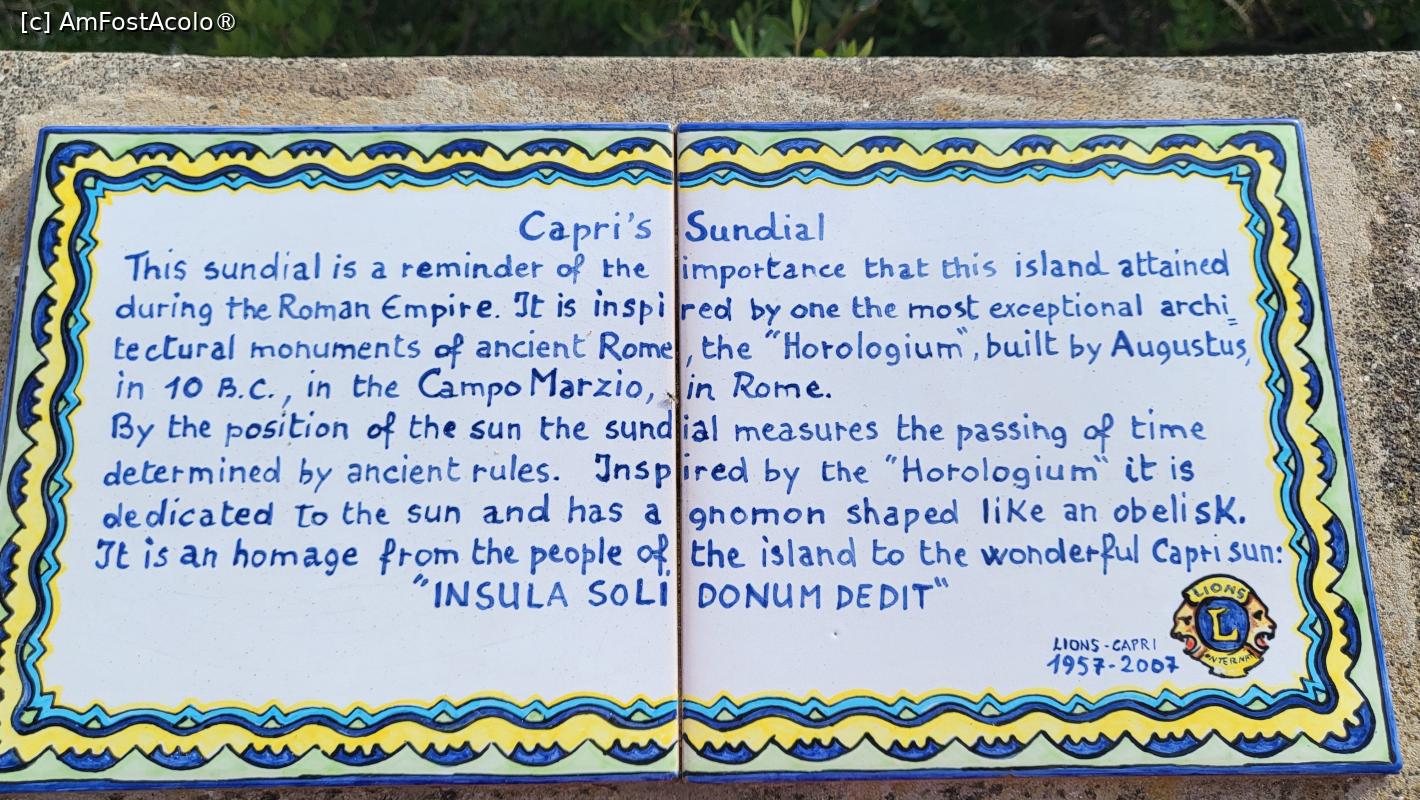 [c] AmFostAcolo®
Capri's Sundial
This sundial is a reminder of the importance that this island attained
during the Roman Empire. It is inspired by one the most exceptional archi=
tectural monuments of ancient Rome, the "Horologium", built by Augustus,
in 10 B.C., in the Campo Marzio, in Rome.
By the position of the sun the sundial measures the passing of time
determined by ancient rules. Inspired by the "Horologium" it is
dedicated to the sun and has a gnomon shaped like an obelisk.
It is an homage from the people of the island to the wonderful Capri sun:
"INSULA SOLI DONUM DEDIT"
LIONS
L
LIONS-CAPRI
1957-2007